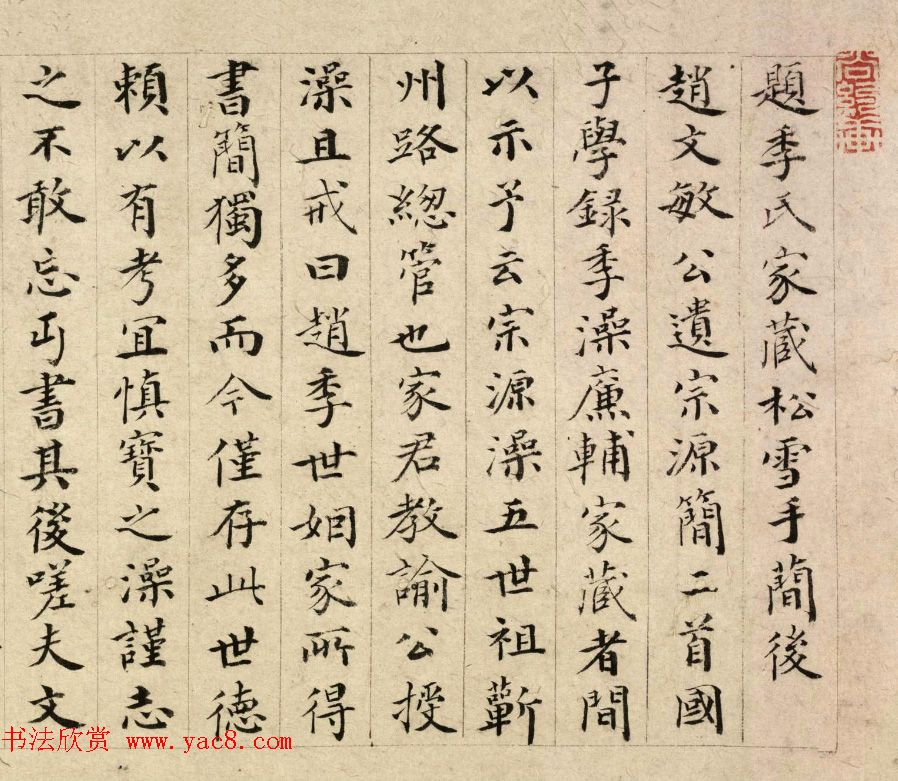 題季氏家藏松雪手蕳後
趙文敏公遺宗源簡二首國
子學録季澡廉輔家藏者間
以示予云宗源澡五世祖蘄
州路緫管也家君教諭公授
澡且戒曰趙季世姻家所得
書簡獨多而今僅存此世德
頼以有考宜慎寶之澡謹志
之不敢忘丐書其後嗟夫文
书法欣赏 www.yac8.com